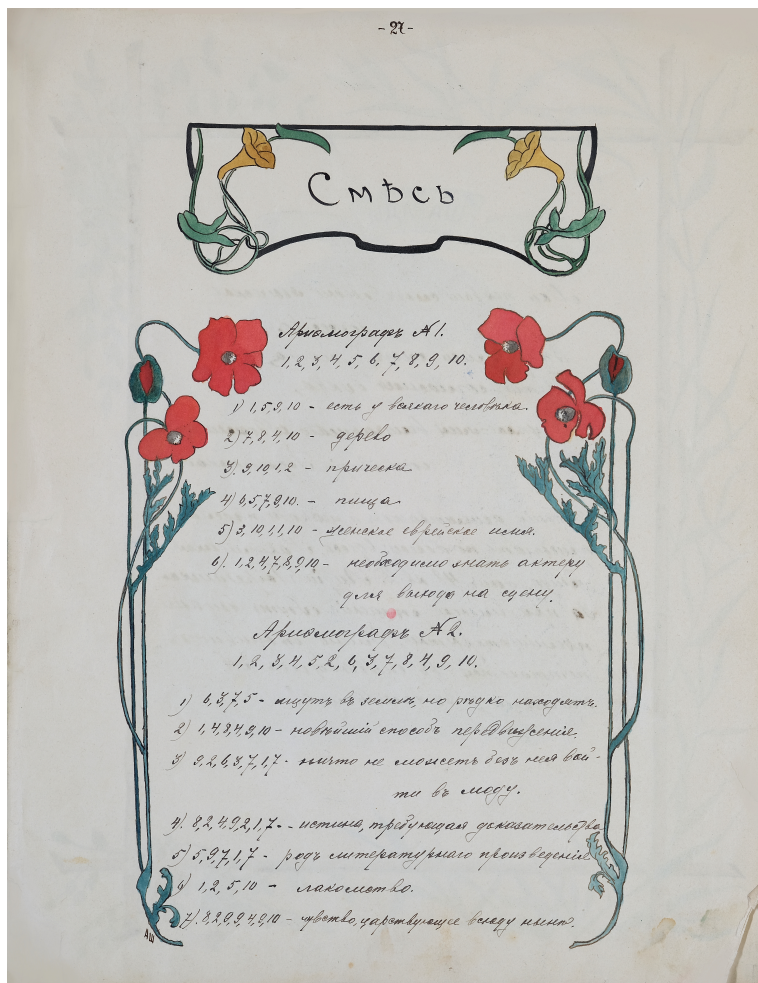 - 27 -
Смѣсь
Ариѳмографъ №1.
1, 2, 3, 4, 5, 6, 7, 8, 9, 10.
1) 1, 5, 9, 10 - есть у всякаго человѣка.
2) 7, 8, 4, 10 - дерево
3) 9, 10, 1, 2 - прическа
4) 6, 5, 7, 9, 10. - пища
5) 3, 10, 1, 1, 10 - женское еврейское имя.
6) 1, 2, 4, 7, 8, 9, 10 - необходимо знать актеру
для выхода на сцену.
Ариѳмографъ №2.
1, 2, 3, 4, 5, 2, 6, 3, 7, 8, 4, 9, 10.
1) 6, 3, 7, 5 - ищутъ въ землѣ, но рѣдко находятъ.
2) 1, 4, 8, 4, 9, 10 - новѣйшій способъ передвиженія.
3) 9, 2, 6, 3, 7, 1, 7 - ничто не можетъ безъ нея вой-
ти въ моду.
4) 8, 2, 4, 9, 2, 1, 7 - истина, требующая доказательства
5) 5, 9, 7, 1, 7 - родъ литературнаго произведенія
6) 1, 2, 5, 10 - лакомство.
7) 8, 2, 9, 9, 4, 9, 10 - чувство, царствующее всюду нынѣ.
АШ